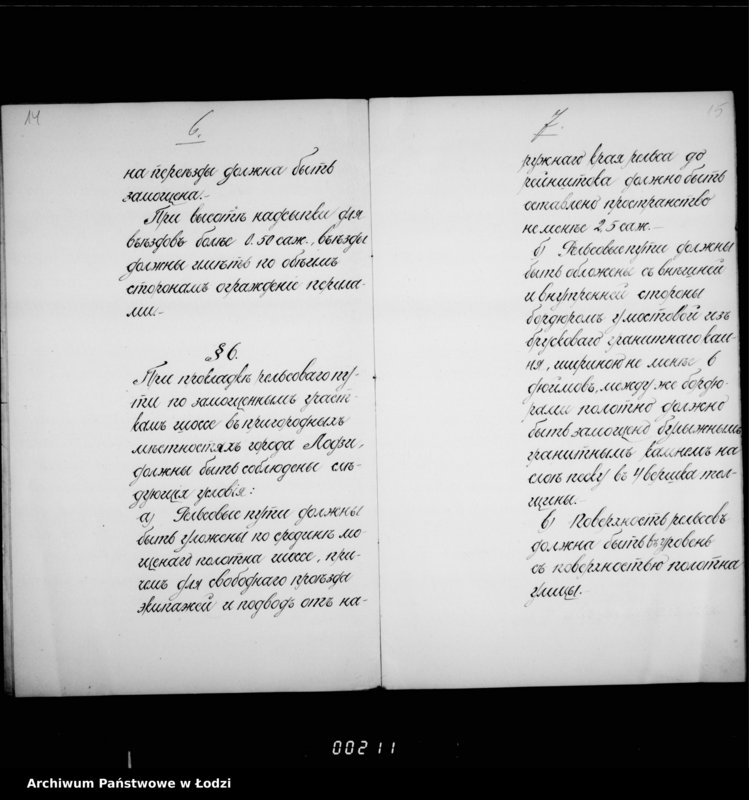 14
6.
на переѣзды должна быть
замощена.
При высотѣ насыпки для
въѣздовъ болѣе 0.50 саж., въѣзды
должны имѣть по обѣимъ
сторонамъ огражденіе перила-
ми.
§ 6.
При прокладкѣ рельсоваго пу-
ти по замощеннымъ участ-
камъ шоссе въ пригородныхъ
мѣстностяхъ города Лодзи,
должны быть соблюдены слѣ-
дующія условія:
а) Рельсовые пути должны
быть уложены по срединѣ мо-
щенаго полотна шоссе, при-
чемъ для свободнаго проѣзда
экипажей и подводъ отъ на-
15
7.
ружнаго края рельса до
рейнштока должно быть
оставлено пространство
не менѣе 2,5 саж.
б) Рельсовые пути должны
быть обложены съ внѣшней
и внутренней стороны
бордюромъ у мостовой изъ
брусковаго гранитнаго кам-
ня, шириною не менѣе 6
дюймовъ, между же бордю-
рами полотно должно
быть замощено булыжнымъ
гранитнымъ камнемъ на
слоѣ песку въ 4 вершка тол-
щины.
в) Поверхность рельсовъ
должна быть въ уровень
съ поверхностью полотна
улицы.
00211
Archiwum Państwowe w Łodzi